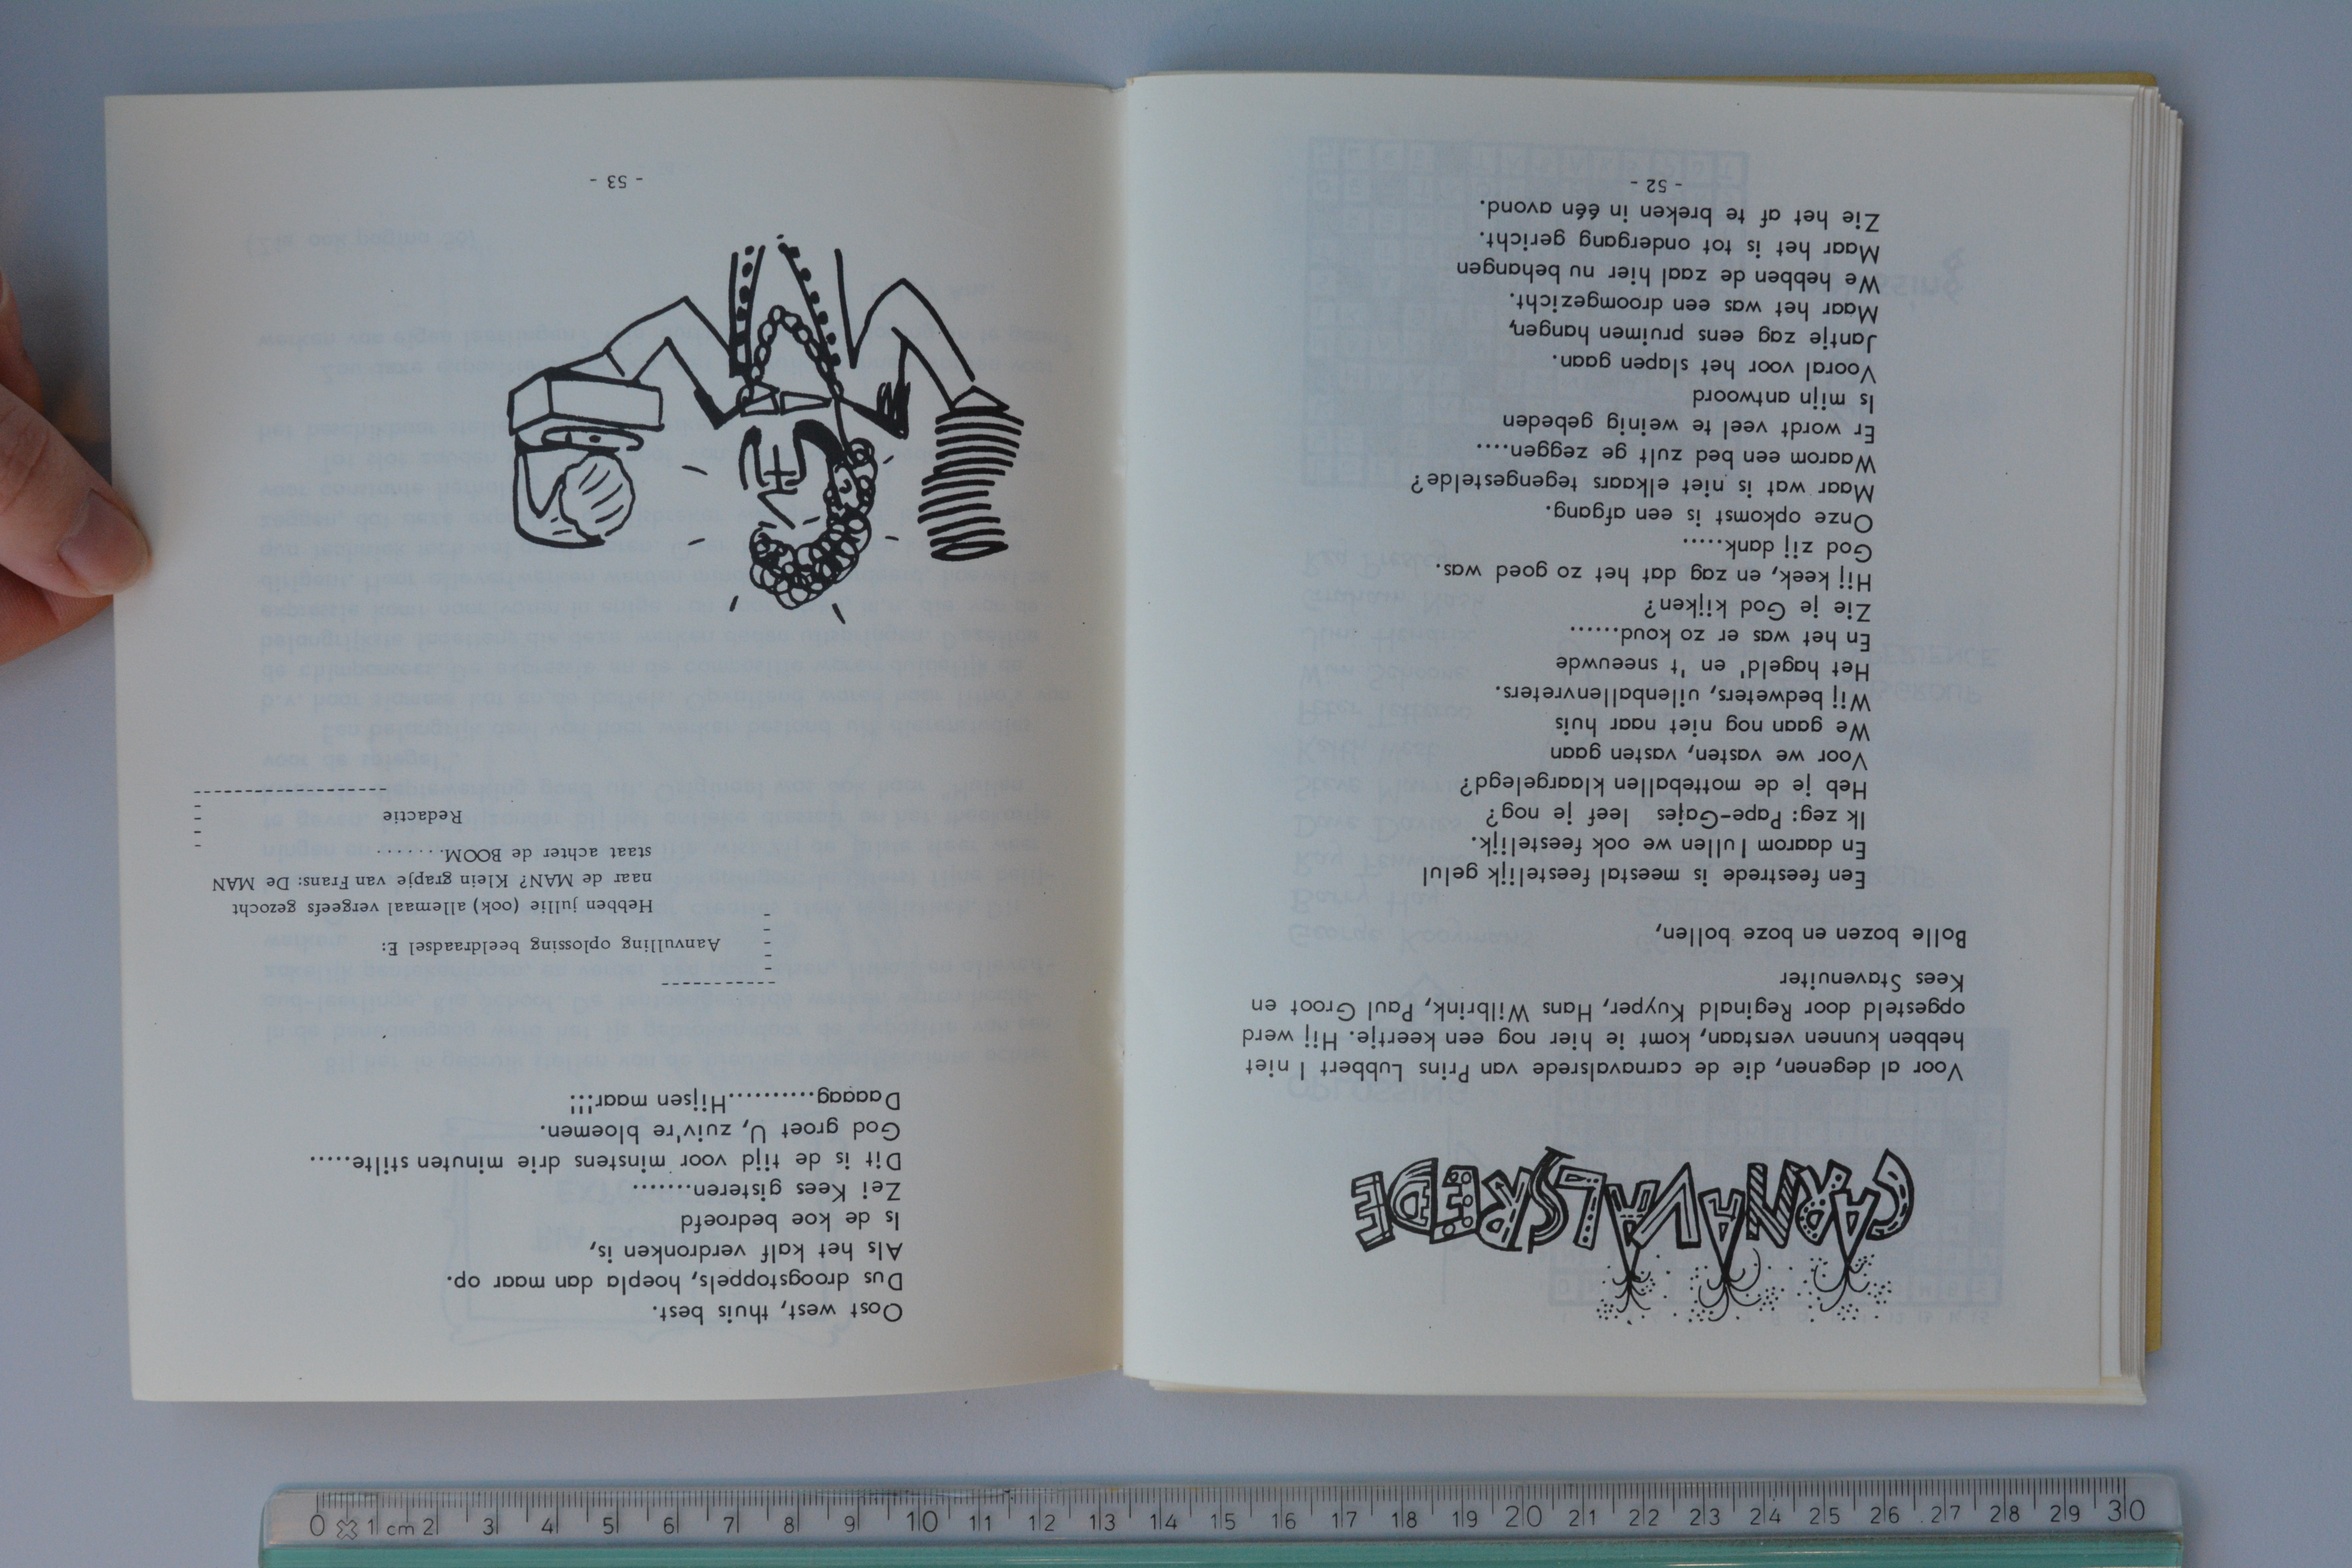 CARNAVALSREDE
Voor al degenen, die de carnavalsrede van Prins Lubbert I niet
hebben kunnen verstaan, komt ie hier nog een keertje. Hij werd
opgesteld door Reginald Kuyper, Hans Wilbrink, Paul Groot en
Kees Stavenuiter
Bolle bozen en boze bollen,
Een feestrede is meestal feestelijk gelul
En daarom lullen we ook feestelijk.
Ik zeg: Pape-Gajes leef je nog?
Heb je de motteballen klaargelegd?
Voor we vasten, vasten gaan
We gaan nog niet naar huis
Wij bedweters, uilenballenvreters.
Het hageld' en 't sneeuwde
En het was er zo koud......
Zie je God kijken?
Hij keek, en zag dat het zo goed was.
God zij dank.....
Onze opkomst is een afgang.
Maar wat is niet elkaars tegengestelde?
Waarom een bed zult ge zeggen....
Er wordt veel te weinig gebeden
Is mijn antwoord
Vooral voor het slapen gaan.
Jantje zag eens pruimen hangen,
Maar het was een droomgezicht.
We hebben de zaal hier nu behangen
Maar het is tot ondergang gericht.
Zie het af te breken in één avond.
- 52 -
Oost west, thuis best.
Dus droogstoppels, hoepla dan maar op.
Als het kalf verdronken is,
Is de koe bedroefd
Zei Kees gisteren........
Dit is de tijd voor minstens drie minuten stilte.....
God groet U, zuiv're bloemen.
Daaag...........Hijsen maar!!!
Aanvulling oplossing beeldraadsel E:
Hebben jullie (ook) allemaal vergeefs gezocht
naar de MAN? Klein grapje van Frans: De MAN
staat achter de BOOM.......
Redactie
- 53 -
0 1 cm 2 3 4 5 6 7 8 9 10 11 12 13 14 15 16 17 18 19 20 21 22 23 24 25 26 27 28 29 30